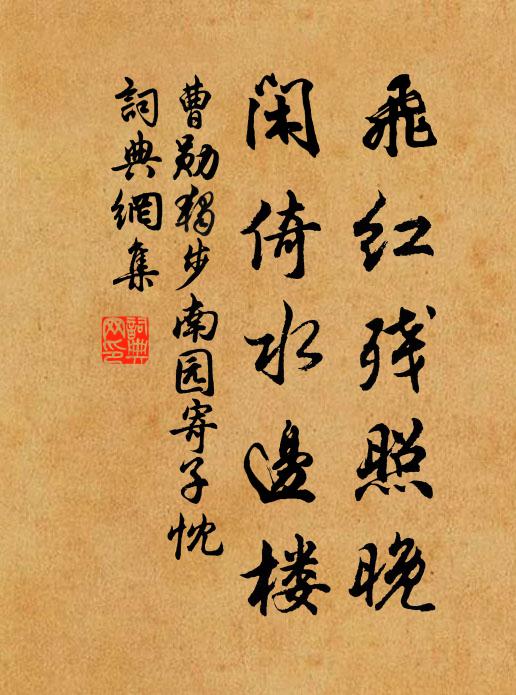 飛红残照晚
闲倚水邊楼
曹勋獨步南园寄子忱
詞典網集
詞典网印